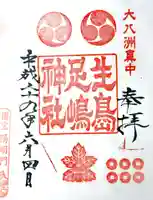 大八洲真中
奉拝
生島
足嶋
神社
平成二十九年六月四日